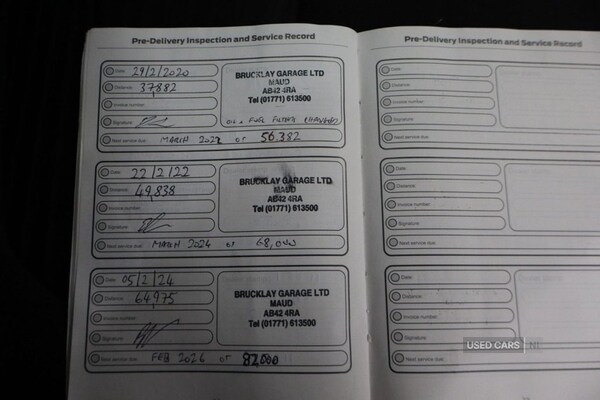 Pre-Delivery Inspection and Service Record
Date: 29/2/2020
Distance: 37,882
Invoice number:
Signature:
BRUCKLAY GARAGE LTD
MAUD
AB42 4RA
Tel (01771) 613500
OIL & FUEL FILTER CHANGED
Next service due: MARCH 2022 OR 56,382
Date: 22/2/22
Distance: 49,838
Invoice number:
Signature:
BRUCKLAY GARAGE LTD
MAUD
AB42 4RA
Tel (01771) 613500
Next service due: MARCH 2024 OR 68,000
Date: 05/2/24
Distance: 64,975
Invoice number:
Signature:
BRUCKLAY GARAGE LTD
MAUD
AB42 4RA
Tel (01771) 613500
Next service due: FEB 2026 OR 82,000
Pre-Delivery Inspection and Service Record
Date:
Distance:
Invoice number:
Signature:
Next service due:
Date:
Distance:
Invoice number:
Signature:
Next service due:
Date:
Distance:
Invoice number:
Signature:
Next service due:
USED CARS NI